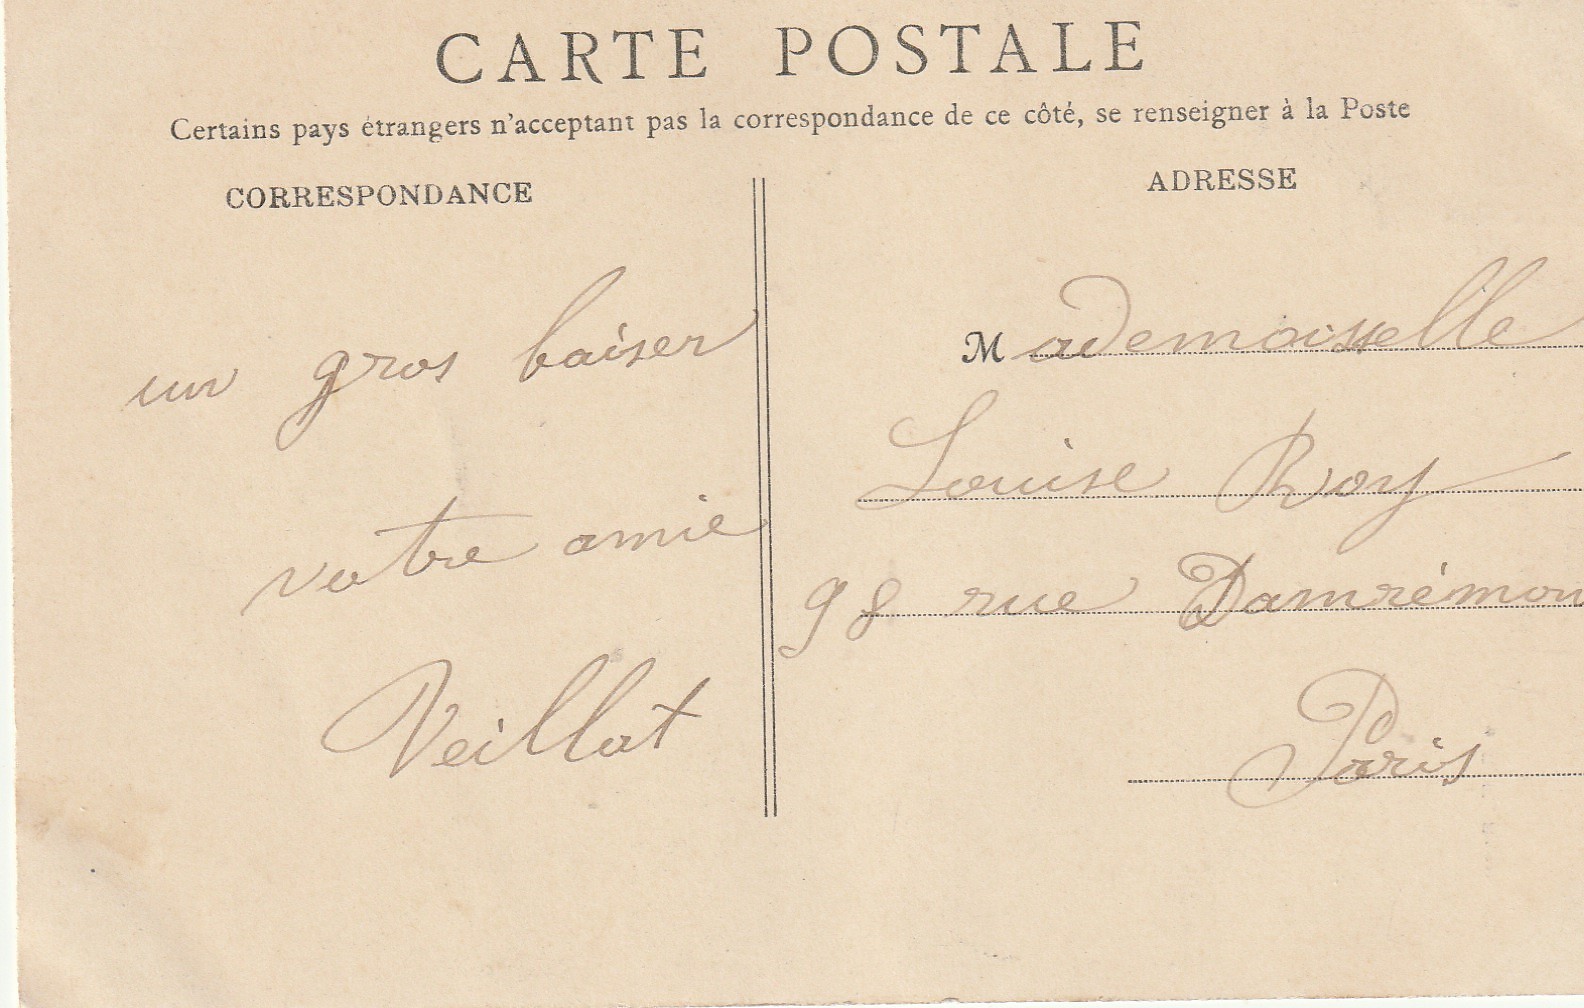 CARTE POSTALE
Certains pays étrangers n'acceptant pas la correspondance de ce côté, se renseigner à la Poste
CORRESPONDANCE
un gros baiser
votre amie
Veillat
ADRESSE
Mademoisselle
Louise Roy
98 rue Damrémon
Paris